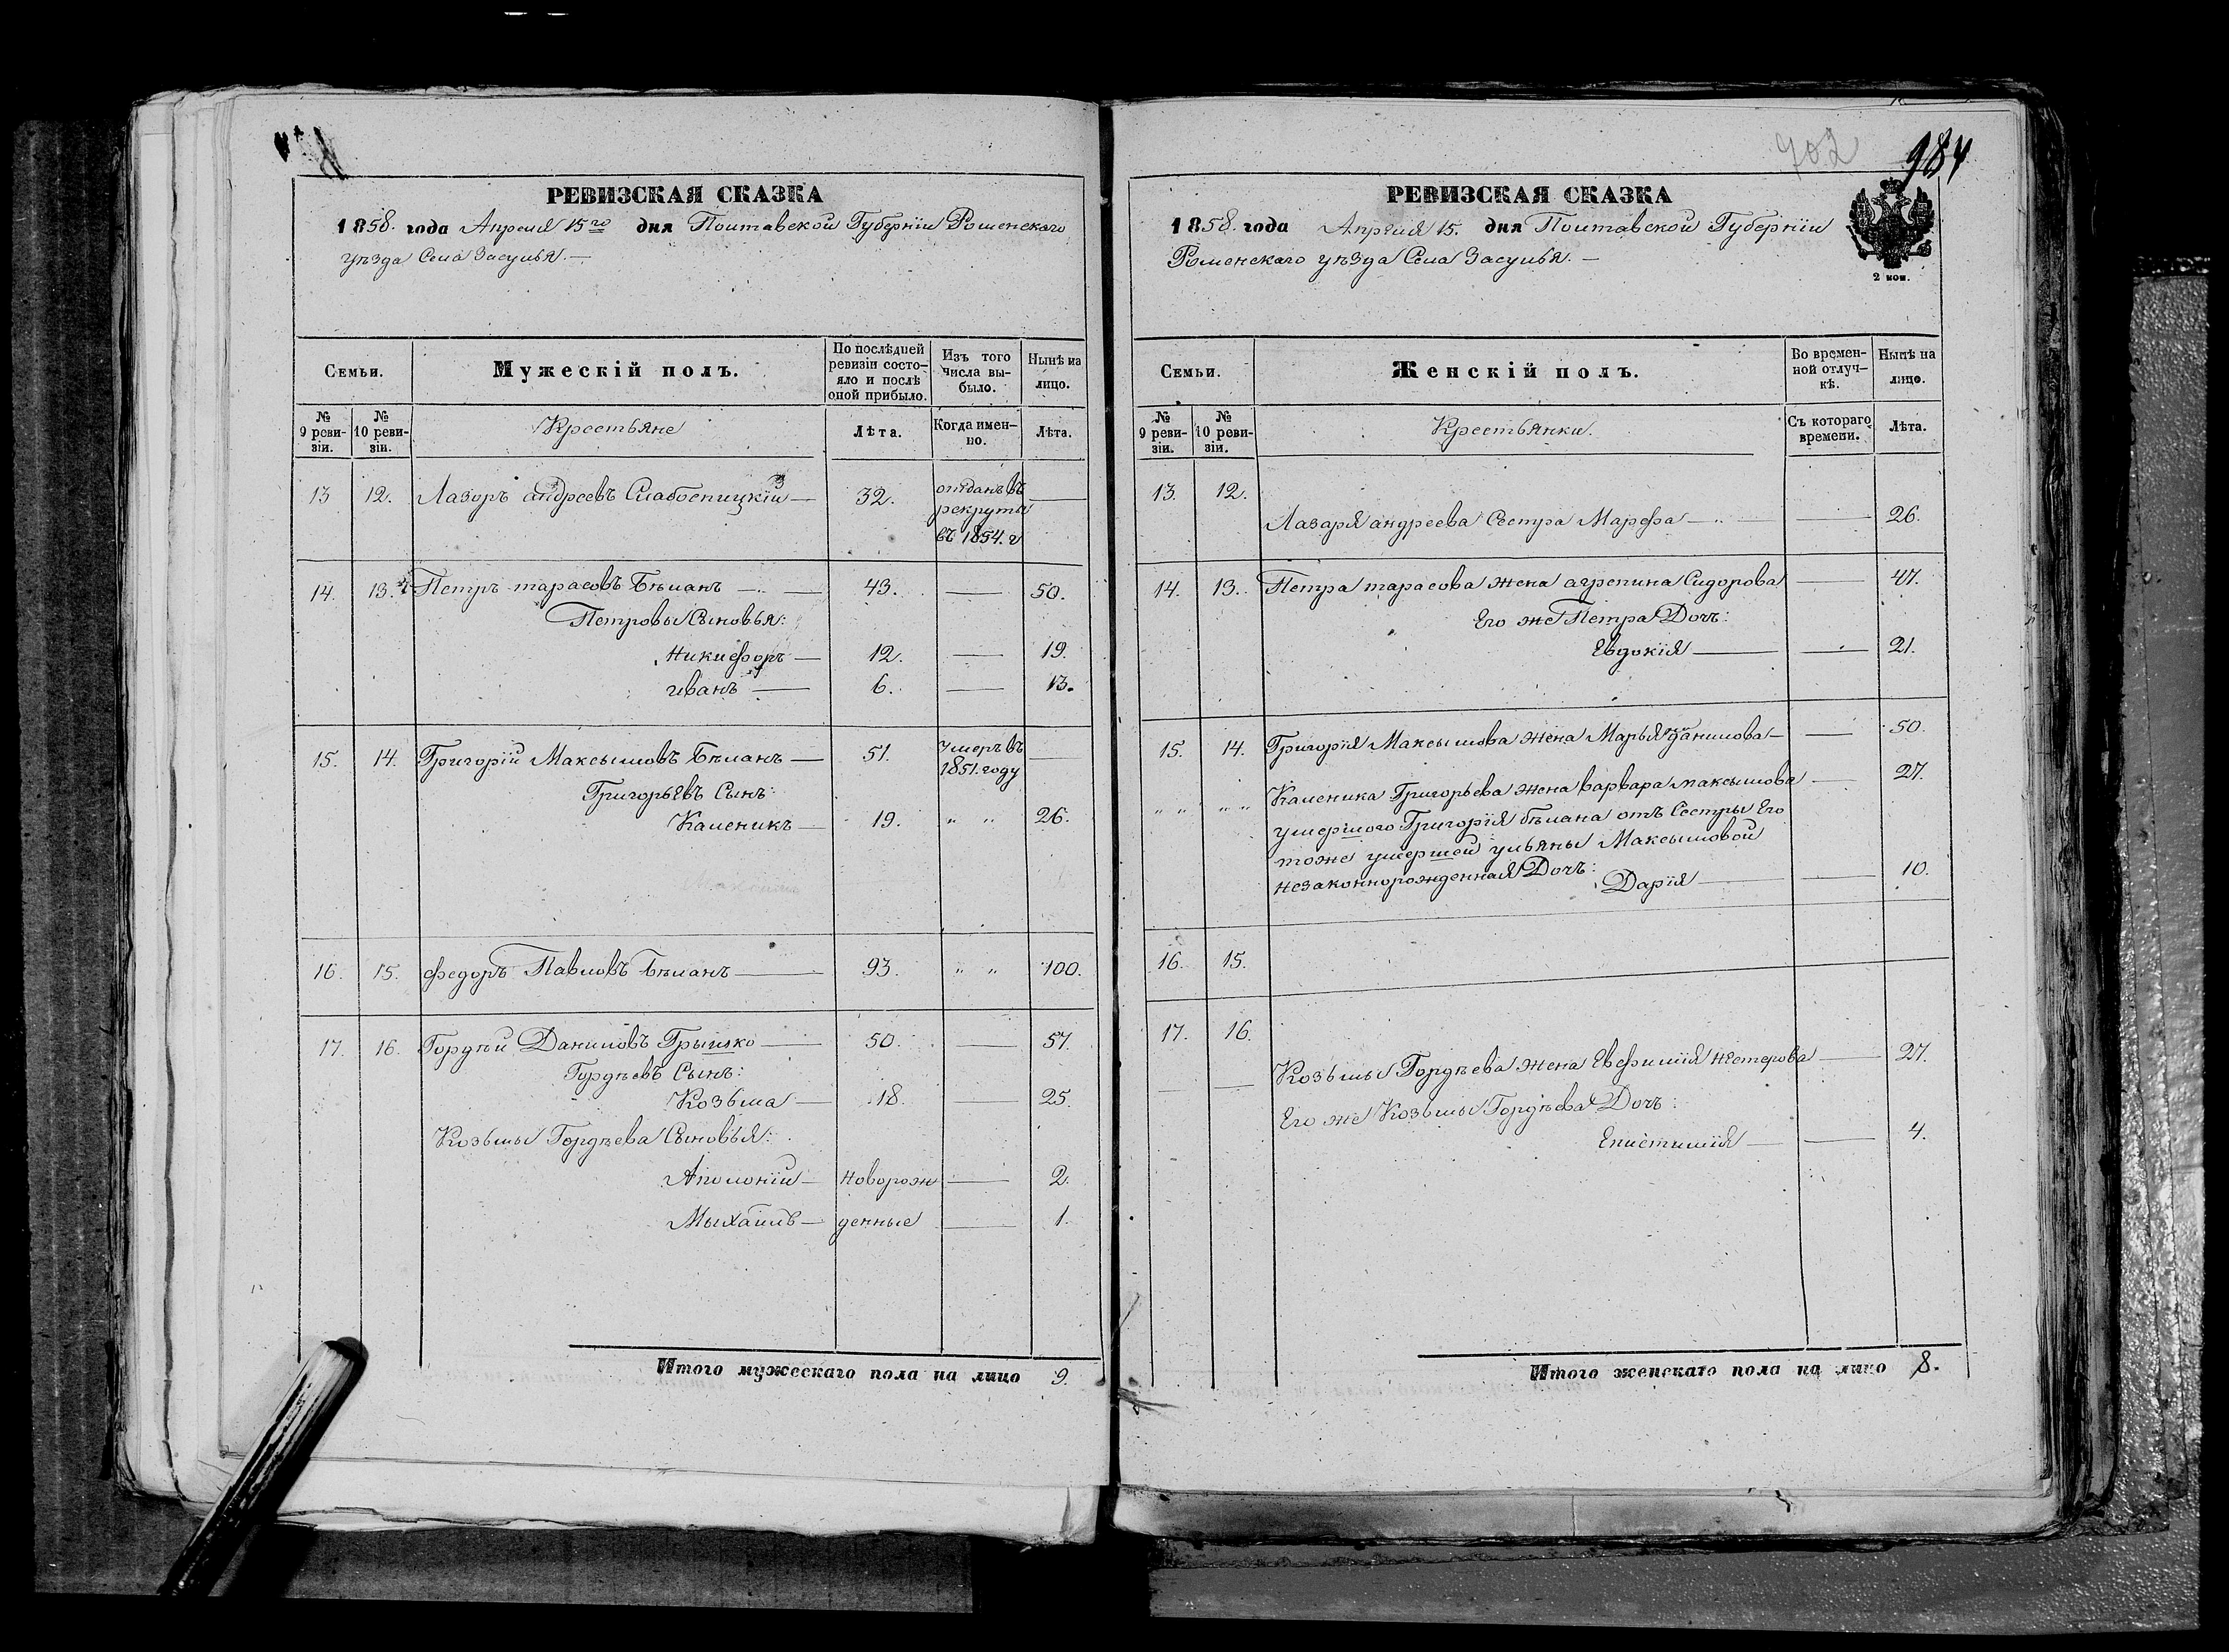 РЕВИЗСКАЯ СКАЗКА
1858. года Апреля 15го дня Полтавской Губерніи Роменскаго
уѣзда Села Засулья. —
Семьи.
Мужескій полъ.
По послѣдней ревизіи состояло и послѣ оной прибыло.
Изъ того числа выбыло.
Нынѣ на лицо.
№ 9 ревизіи.
№ 10 ревизіи.
Крестьяне
Лѣта.
Когда именно.
Лѣта.
13 12. Лазоръ андреевъ Слабоспицкій — 32. отданъ въ рекруты въ 1854. г —
14. 13. Петръ тарасовъ Бѣланъ — 43. — 50.
Петровы Сыновья:
Никифоръ — 12. — 19.
иванъ — 6. — 13.
15. 14. Григорій Максымовъ Бѣланъ — 51. Умеръ въ 1851. году —
Григорьевъ Сынъ:
Каленикъ — 19. " " 26.
16. 15. федоръ Павловъ Бѣланъ — 93. " " 100.
17. 16. Гордѣй Даниловъ Грышко — 50. — 57.
Гордѣевъ Сынъ:
Козьма — 18. — 25.
Козьмы Гордѣева Сыновья:
Аполоній — новорож — 2.
Мыхаилъ — денные — 1.
Итого мужескаго пола на лицо 9.
702
984
РЕВИЗСКАЯ СКАЗКА
1858. года Апреля 15. дня Полтавской Губерніи
Роменскаго уѣзда Села Засулья. —
2 коп.
Семьи.
Женскій полъ.
Во временной отлучкѣ.
Нынѣ на лицо.
№ 9 ревизіи.
№ 10 ревизіи.
Крестьянки.
Съ котораго времени.
Лѣта.
13. 12.
Лазаря андреева Сестра Марфа — — 26.
14. 13. Петра тарасова жена агрепина Сидорова — 47.
Его же Петра Дочь:
Евдокія — — 21.
15. 14. Григорія Максымова жена Марья Данилова — — 50.
" " " " Каленика Григорьева жена варвара максымова — 27.
умершого Григорія бѣлана отъ Сестры Его
тоже умершей ульяны Максымовой
незаконнорожденная Дочь:
Дарія — — 10.
16. 15.
17. 16.
— — Козьмы Гордѣева жена Евфимія нестерова — 27.
Его же Козьмы Гордѣева Дочь:
Епистимія — — 4.
Итого женскаго пола на лицо 8.